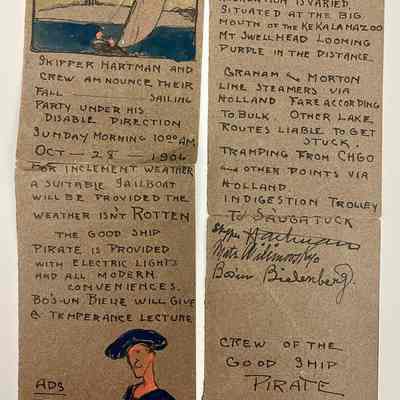 SKIPPER HARTMAN AND
CREW ANNOUNCE THEIR
FALL SAILING
PARTY UNDER HIS
DISABLE DIRECTION
SUNDAY MORNING 10:00 AM
OCT - 28 - 1906
FOR INCLEMENT WEATHER
A SUITABLE SAILBOAT
WILL BE PROVIDED THE
WEATHER ISN'T ROTTEN
THE GOOD SHIP
PIRATE IS PROVIDED
WITH ELECTRIC LIGHTS
AND ALL MODERN
CONVENIENCES.
BO'S-UN WILL GIVE
A TEMPERANCE LECTURE
ADS
IS VARIED
SITUATED AT THE BIG
MOUTH OF THE KEKALAMAZOO
MT SWELLHEAD LOOMING
PURPLE IN THE DISTANCE.
GRAHAM & MORTON
LINE STEAMERS VIA
HOLLAND FARE ACCORDING
TO BULK. OTHER LAKE
ROUTES LIABLE TO GET
STUCK.
TRAMPING FROM CHGO
AND OTHER POINTS VIA
HOLLAND.
INDIGESTION TROLLEY
TO SAUGATUCK
Hartman
Mate
Bosun Bielenberg.
CREW OF THE
GOOD SHIP
PIRATE